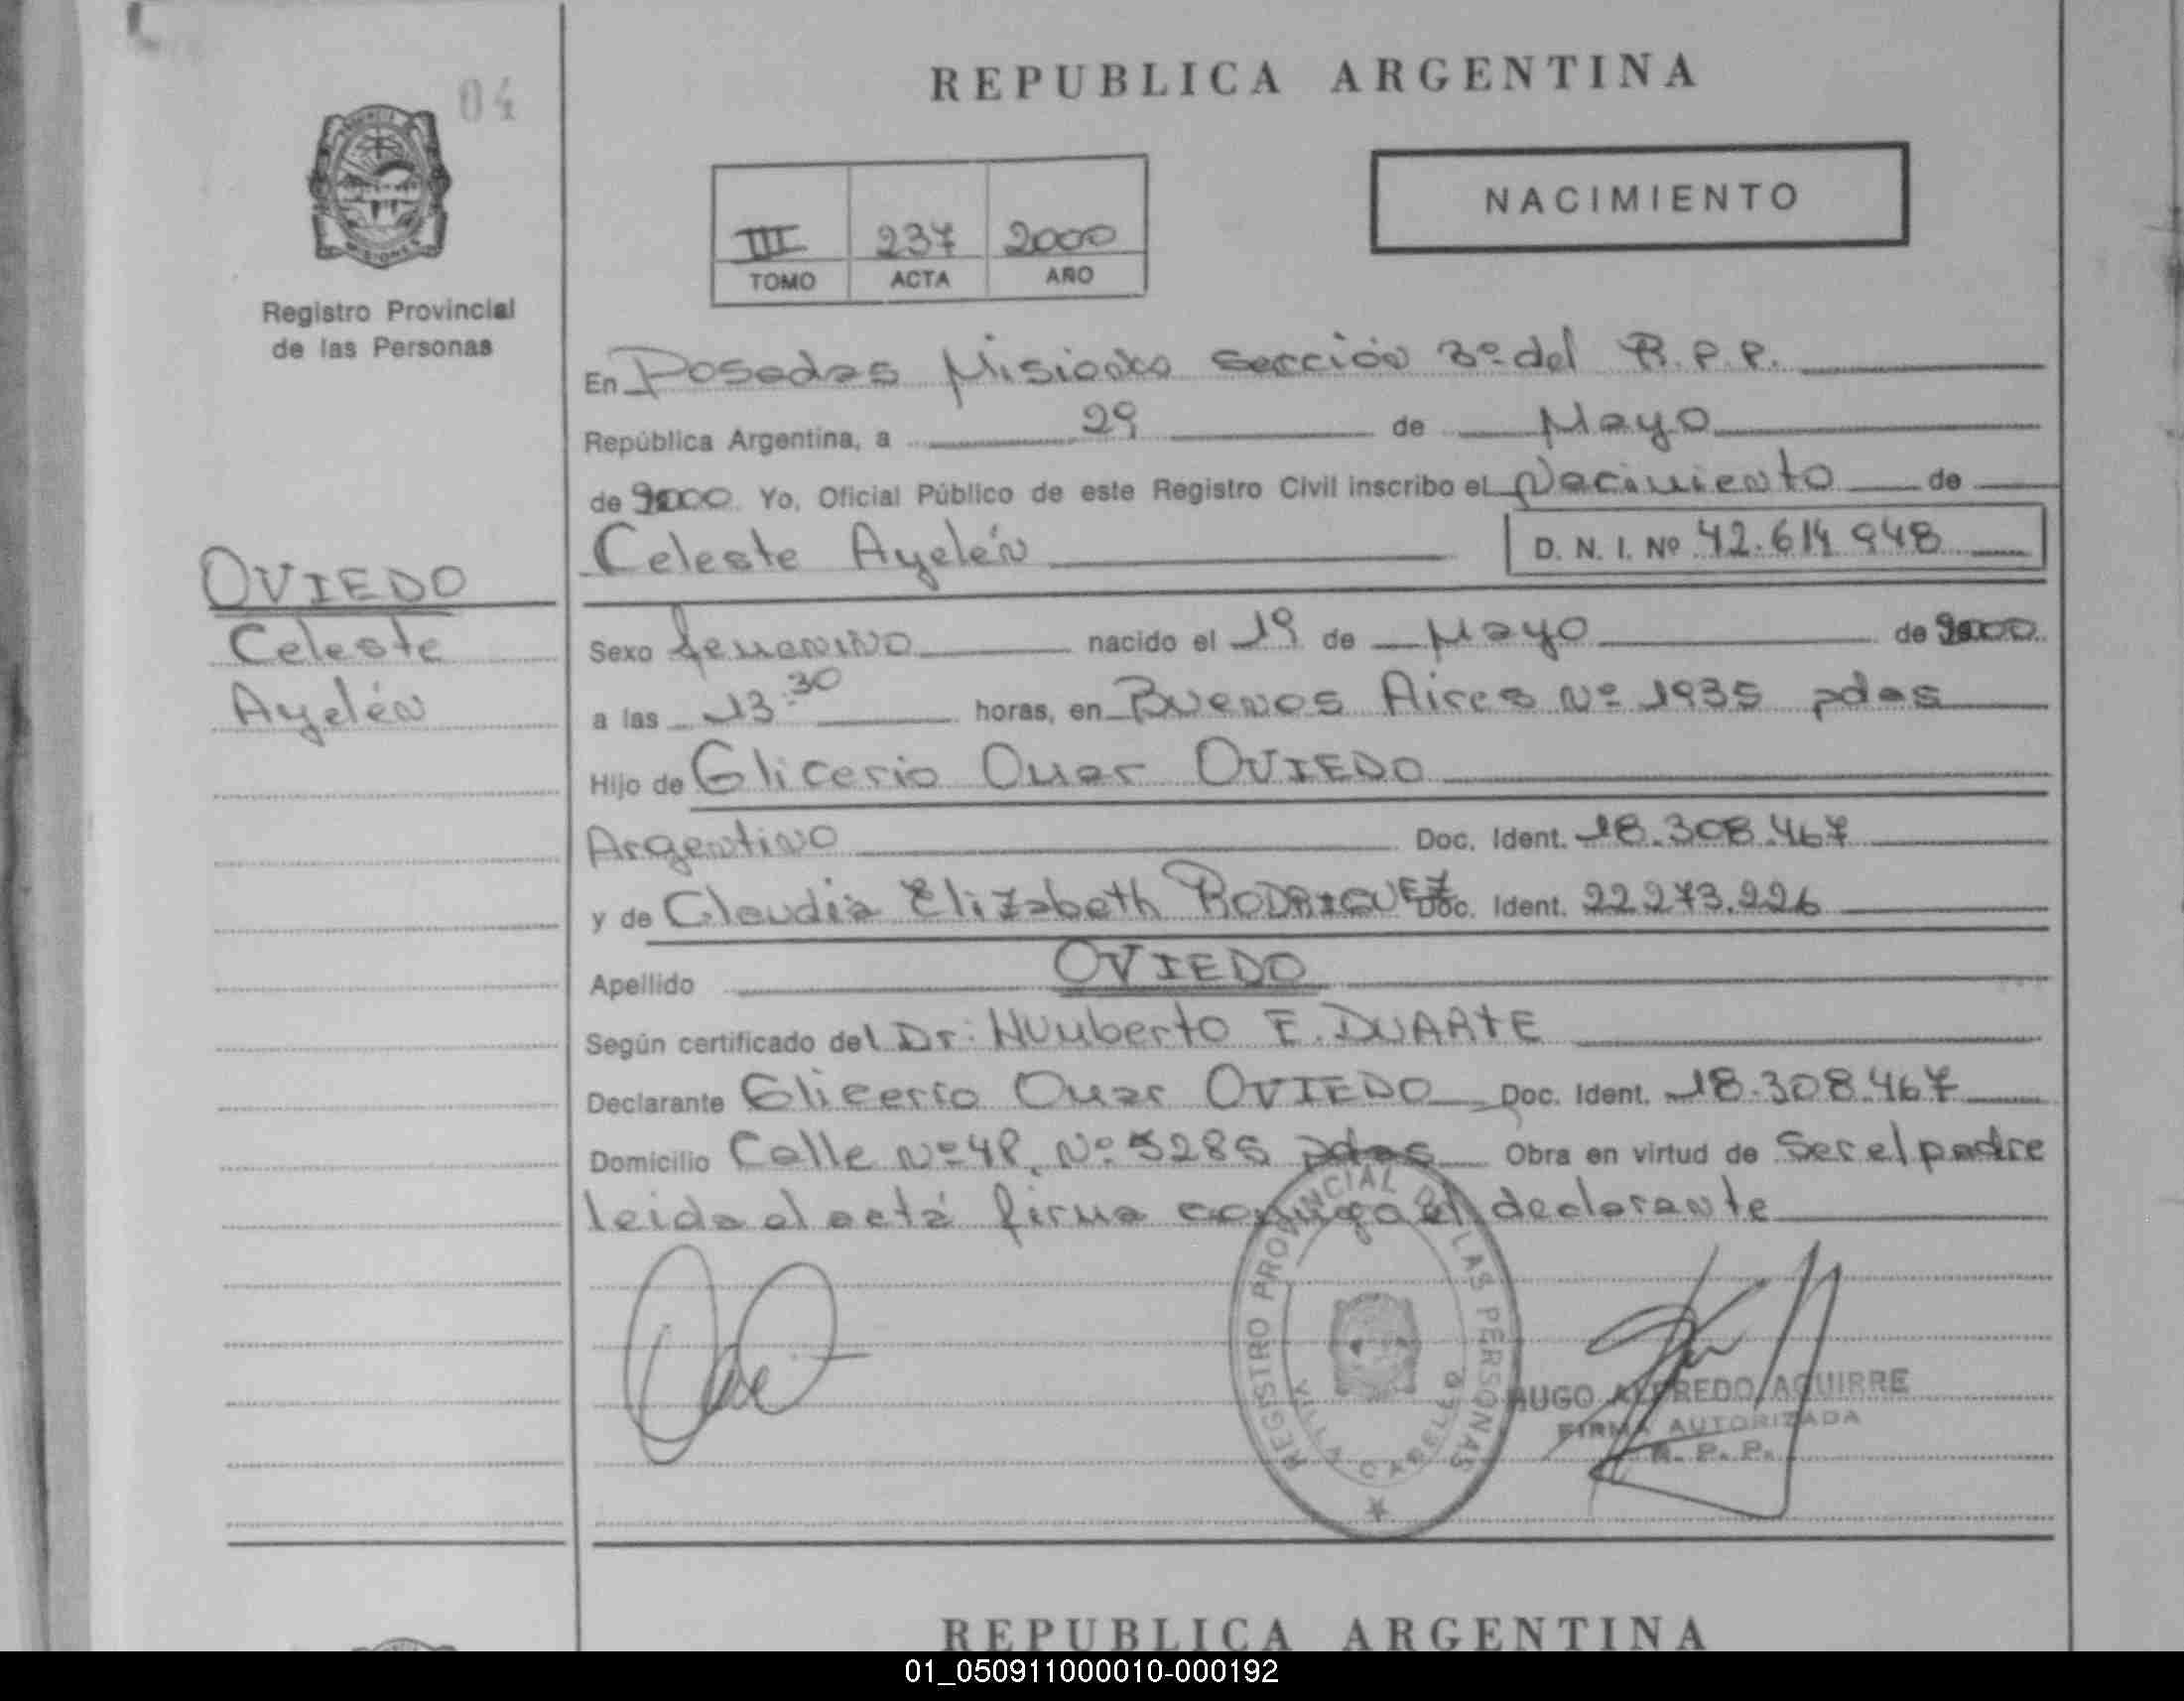 04
REPUBLICA ARGENTINA
NACIMIENTO
III 237 2000
TOMO ACTA AÑO
MISIONES
Registro Provincial
de las Personas
En Posadas Misiones sección 3º del R.P.P.
República Argentina, a 29 de Mayo
de 2000 Yo, Oficial Público de este Registro Civil inscribo el Nacimiento de
Celeste Ayelén D. N. I. Nº 42.614 948
OVIEDO
Celeste
Ayelén
Sexo femenino nacido el 19 de Mayo de 2000
a las 13:30 horas, en Buenos Aires Nº 1935 pdas
Hijo de Glicerio Omar OVIEDO
Argentino Doc. Ident. 18.308.467
y de Claudia Elizabeth RODRIGUEZ Doc. Ident. 22.273.226
Apellido OVIEDO
Según certificado del Dr: Humberto E. DUARTE
Declarante Glicerio Omar OVIEDO Doc. Ident. 18.308.467
Domicilio Calle Nº 48, Nº 5285 pdas Obra en virtud de ser el padre
leida el acta firma conmigo el declarante
REGISTRO PROVINCIAL DE LAS PERSONAS
VILLA CABELLO
HUGO ALFREDO AGUIRRE
FIRMA AUTORIZADA
R. P. P.
REPUBLICA ARGENTINA
01_050911000010-000192